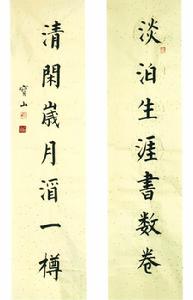 淡泊生涯書数卷
清閑歲月酒一樽
寶山